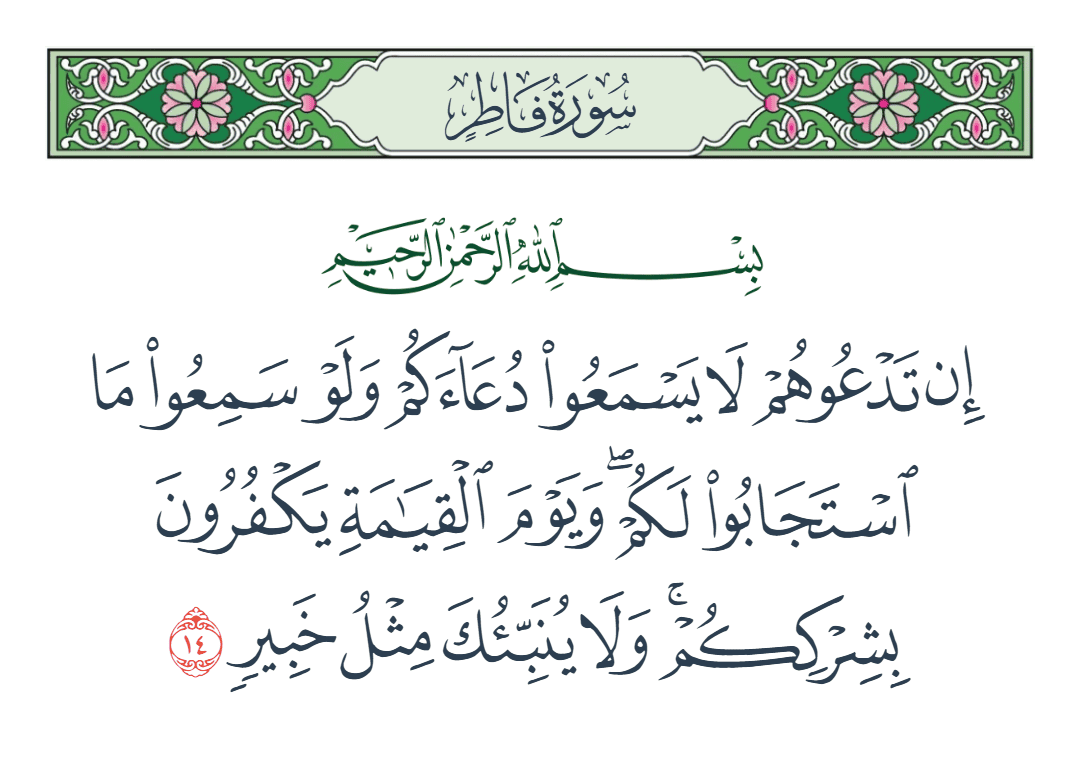 سُورَةُ فَاطِرٍ
بِسْمِ ٱللَّهِ ٱلرَّحْمَٰنِ ٱلرَّحِيمِ
إِن تَدْعُوهُمْ لَا يَسْمَعُوا۟ دُعَآءَكُمْ وَلَوْ سَمِعُوا۟ مَا
ٱسْتَجَابُوا۟ لَكُمْ ۖ وَيَوْمَ ٱلْقِيَٰمَةِ يَكْفُرُونَ
بِشِرْكِكُمْ ۚ وَلَا يُنَبِّئُكَ مِثْلُ خَبِيرٍ ١٤